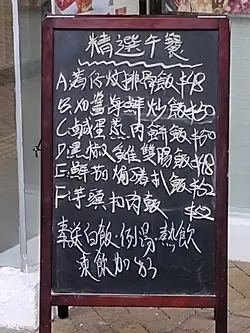 精選午餐
A:薯仔炆排骨飯 $48
B:XO醬海鮮炒飯 $50
C:鹹蛋蒸肉餅飯 $50
D:黑椒雞雙腸飯 $48
E:鮮茄焗豬扒飯 $52
F:芋頭扣肉飯 $52
奉送白飯、例湯、熱飲
凍飲加